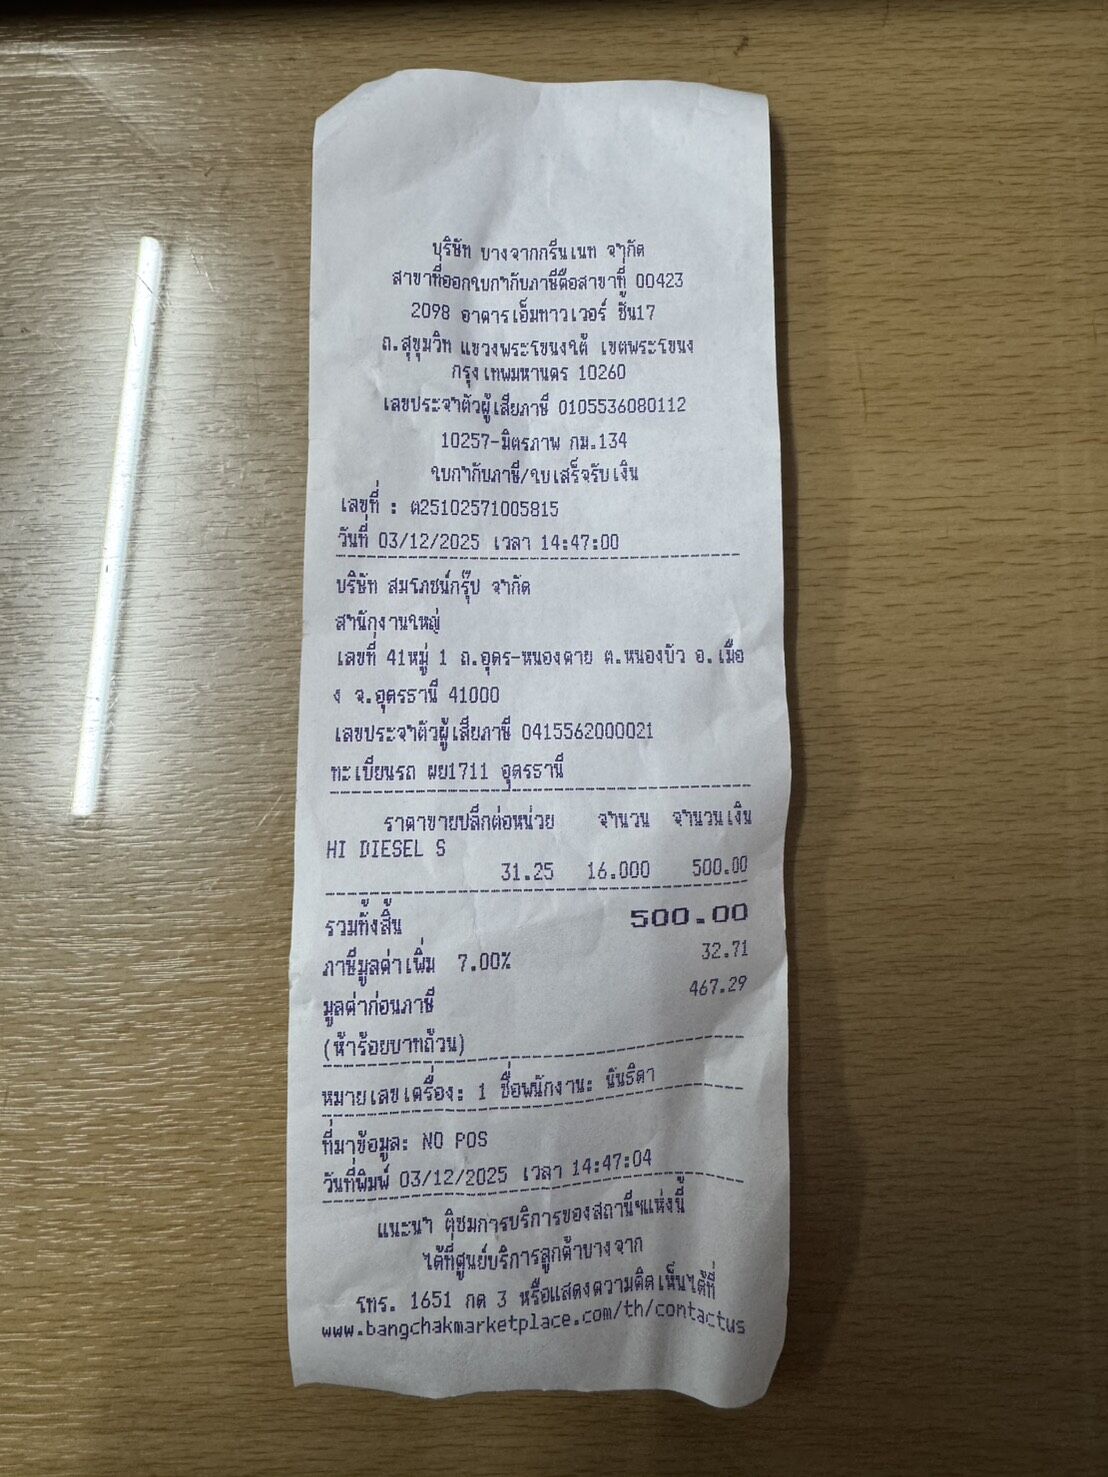 บริษัท บางจากกรีนเนท จำกัด
สาขาที่ออกใบกำกับภาษีคือสาขาที่ 00423
2098 อาคารเอ็มทาวเวอร์ ชั้น17
ถ.สุขุมวิท แขวงพระโขนงใต้ เขตพระโขนง
กรุงเทพมหานคร 10260
เลขประจำตัวผู้เสียภาษี 0105536080112
10257-มิตรภาพ กม.134
ใบกำกับภาษี/ใบเสร็จรับเงิน
เลขที่ : ต25102571005815
วันที่ 03/12/2025 เวลา 14:47:00
บริษัท สมโภชน์กรุ๊ป จำกัด
สำนักงานใหญ่
เลขที่ 41หมู่ 1 ถ.อุดร-หนองคาย ต.หนองบัว อ.เมือ
ง จ.อุดรธานี 41000
เลขประจำตัวผู้เสียภาษี 0415562000021
ทะเบียนรถ ผย1711 อุดรธานี
ราคาขายปลีกต่อหน่วย จำนวน จำนวนเงิน
HI DIESEL S
31.25 16.000 500.00
รวมทั้งสิ้น 500.00
ภาษีมูลค่าเพิ่ม 7.00% 32.71
มูลค่าก่อนภาษี 467.29
(ห้าร้อยบาทถ้วน)
หมายเลขเครื่อง: 1 ชื่อพนักงาน: นันธิดา
ที่มาข้อมูล: NO POS
วันที่พิมพ์ 03/12/2025 เวลา 14:47:04
แนะนำ ติชมการบริการของสถานีฯแห่งนี้
ได้ที่ศูนย์บริการลูกค้าบางจาก
โทร. 1651 กด 3 หรือแสดงความคิดเห็นได้ที่
www.bangchakmarketplace.com/th/contactus